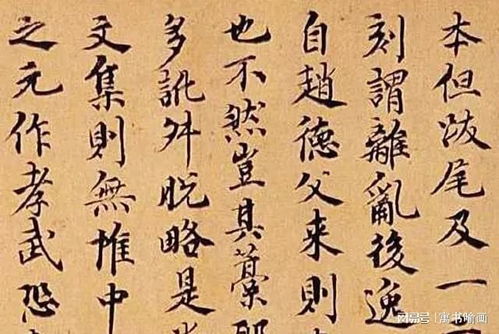 本但跋尾及一
刻謂離亂後逸
自趙德父来則
也不然豈其藁
多訛舛脱略是
文集則無惟中
之元作孝武恐
网易号